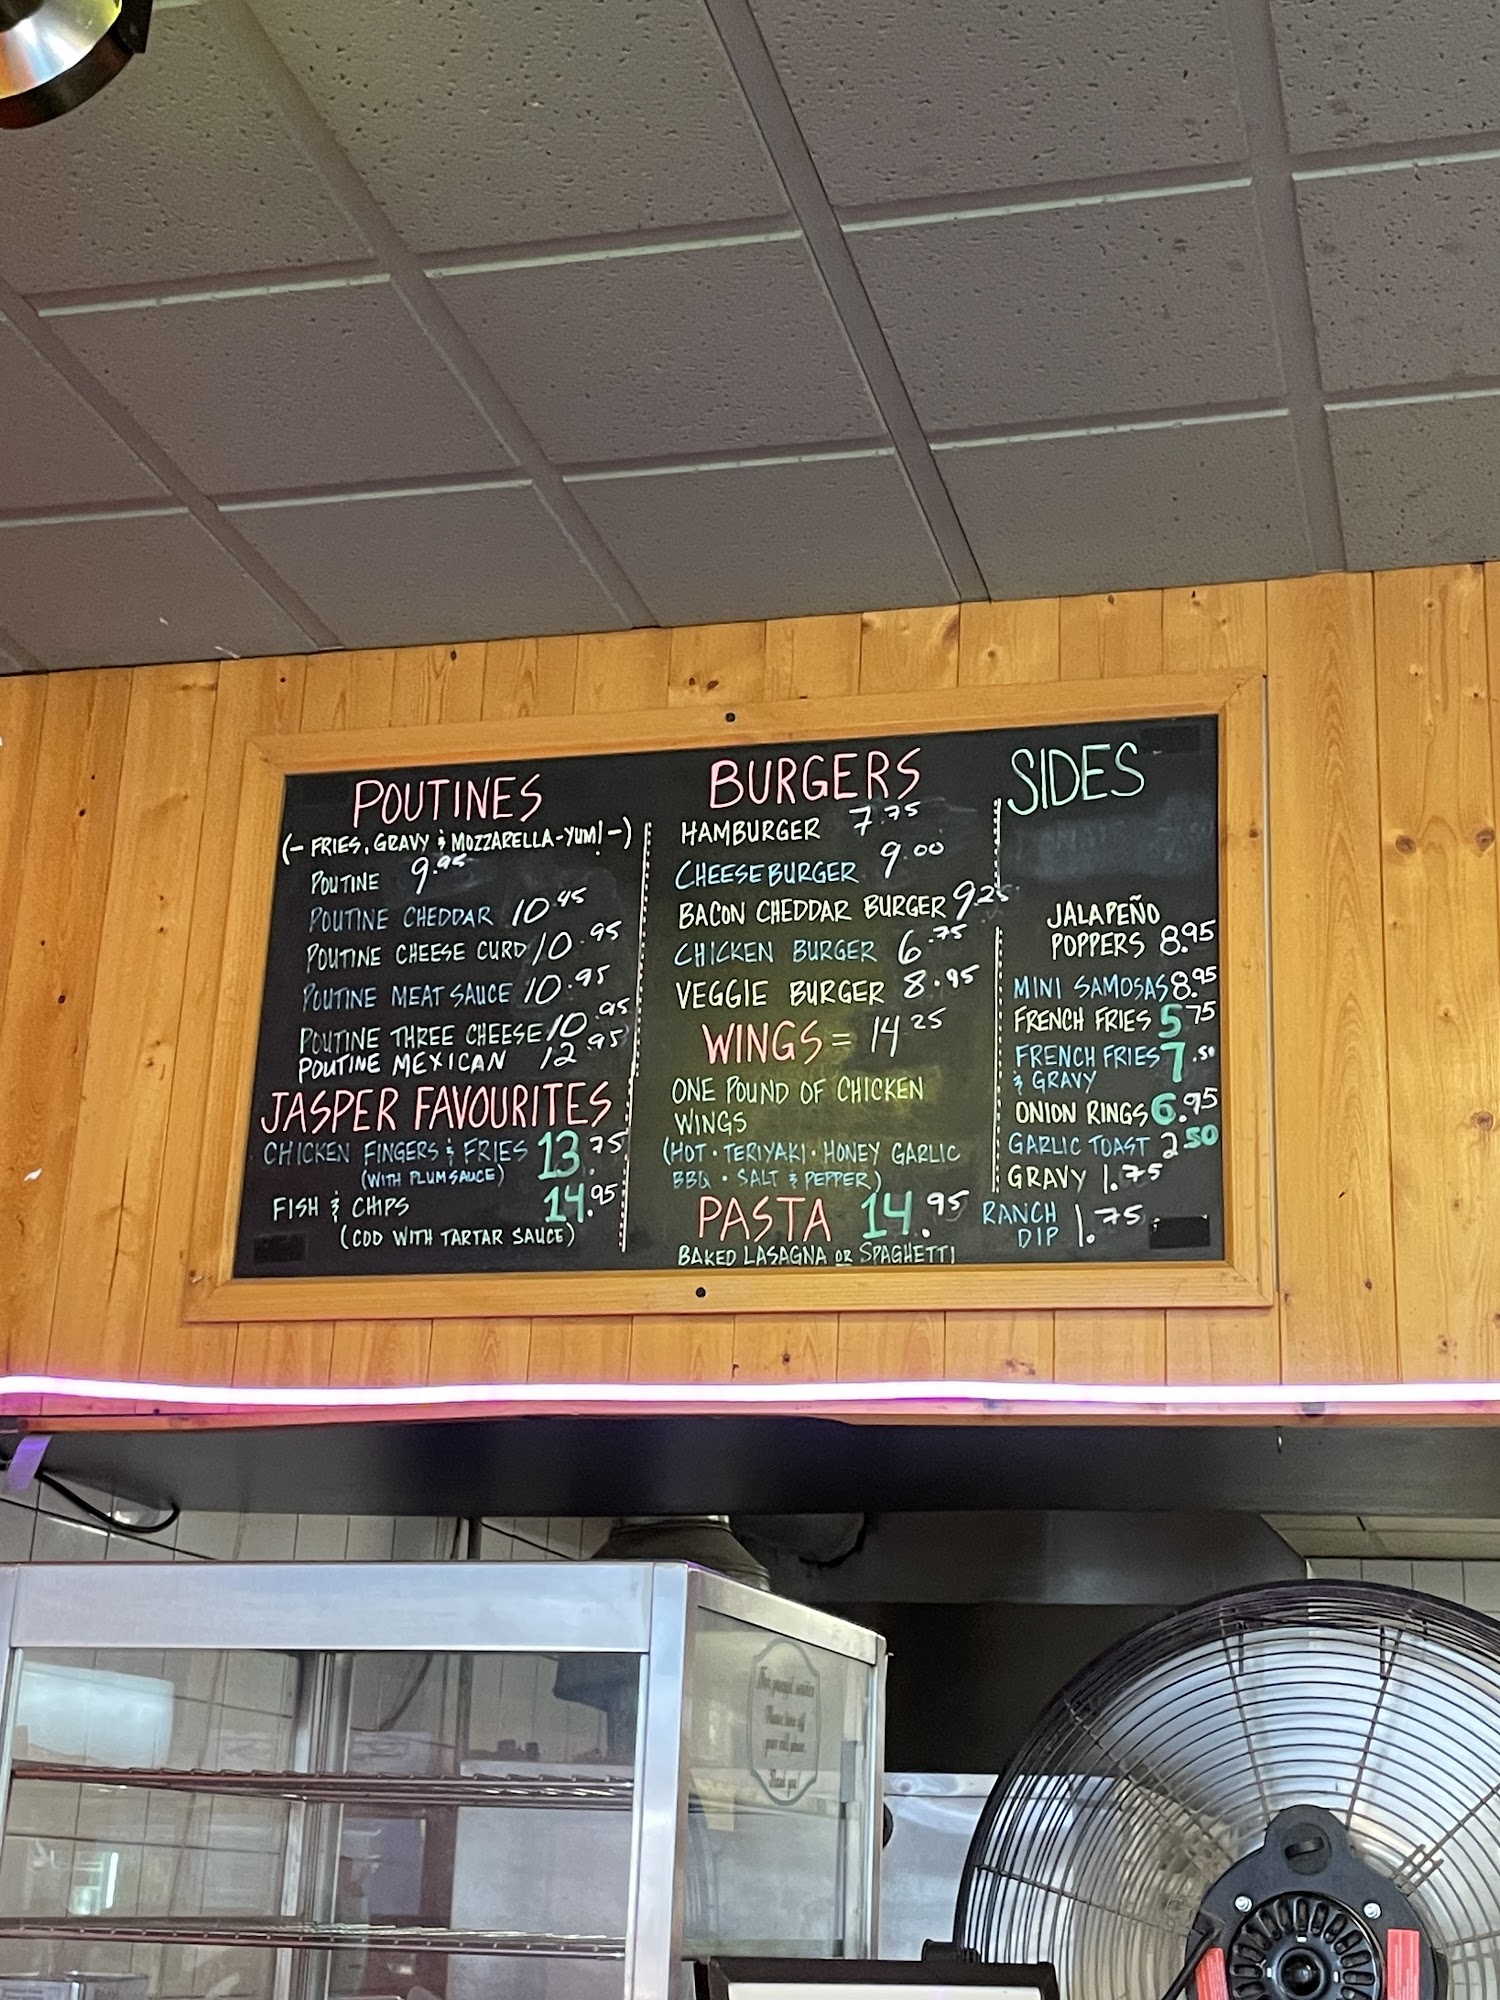 POUTINES
(- FRIES, GRAVY & MOZZARELLA - YUM! -)
POUTINE 9.95
POUTINE CHEDDAR 10.45
POUTINE CHEESE CURD 10.95
POUTINE MEAT SAUCE 10.95
POUTINE THREE CHEESE 10.95
POUTINE MEXICAN 12.95
JASPER FAVOURITES
CHICKEN FINGERS & FRIES 13.75
(WITH PLUM SAUCE)
FISH & CHIPS 14.95
(COD WITH TARTAR SAUCE)
BURGERS
HAMBURGER 7.75
CHEESEBURGER 9.00
BACON CHEDDAR BURGER 9.25
CHICKEN BURGER 6.75
VEGGIE BURGER 8.95
WINGS = 14.25
ONE POUND OF CHICKEN
WINGS
(HOT · TERIYAKI · HONEY GARLIC
BBQ · SALT & PEPPER)
PASTA 14.95
BAKED LASAGNA OR SPAGHETTI
SIDES
JALAPEÑO
POPPERS 8.95
MINI SAMOSAS 8.95
FRENCH FRIES 5.75
FRENCH FRIES 7.50
& GRAVY
ONION RINGS 6.95
GARLIC TOAST 2.50
GRAVY 1.75
RANCH
DIP 1.75